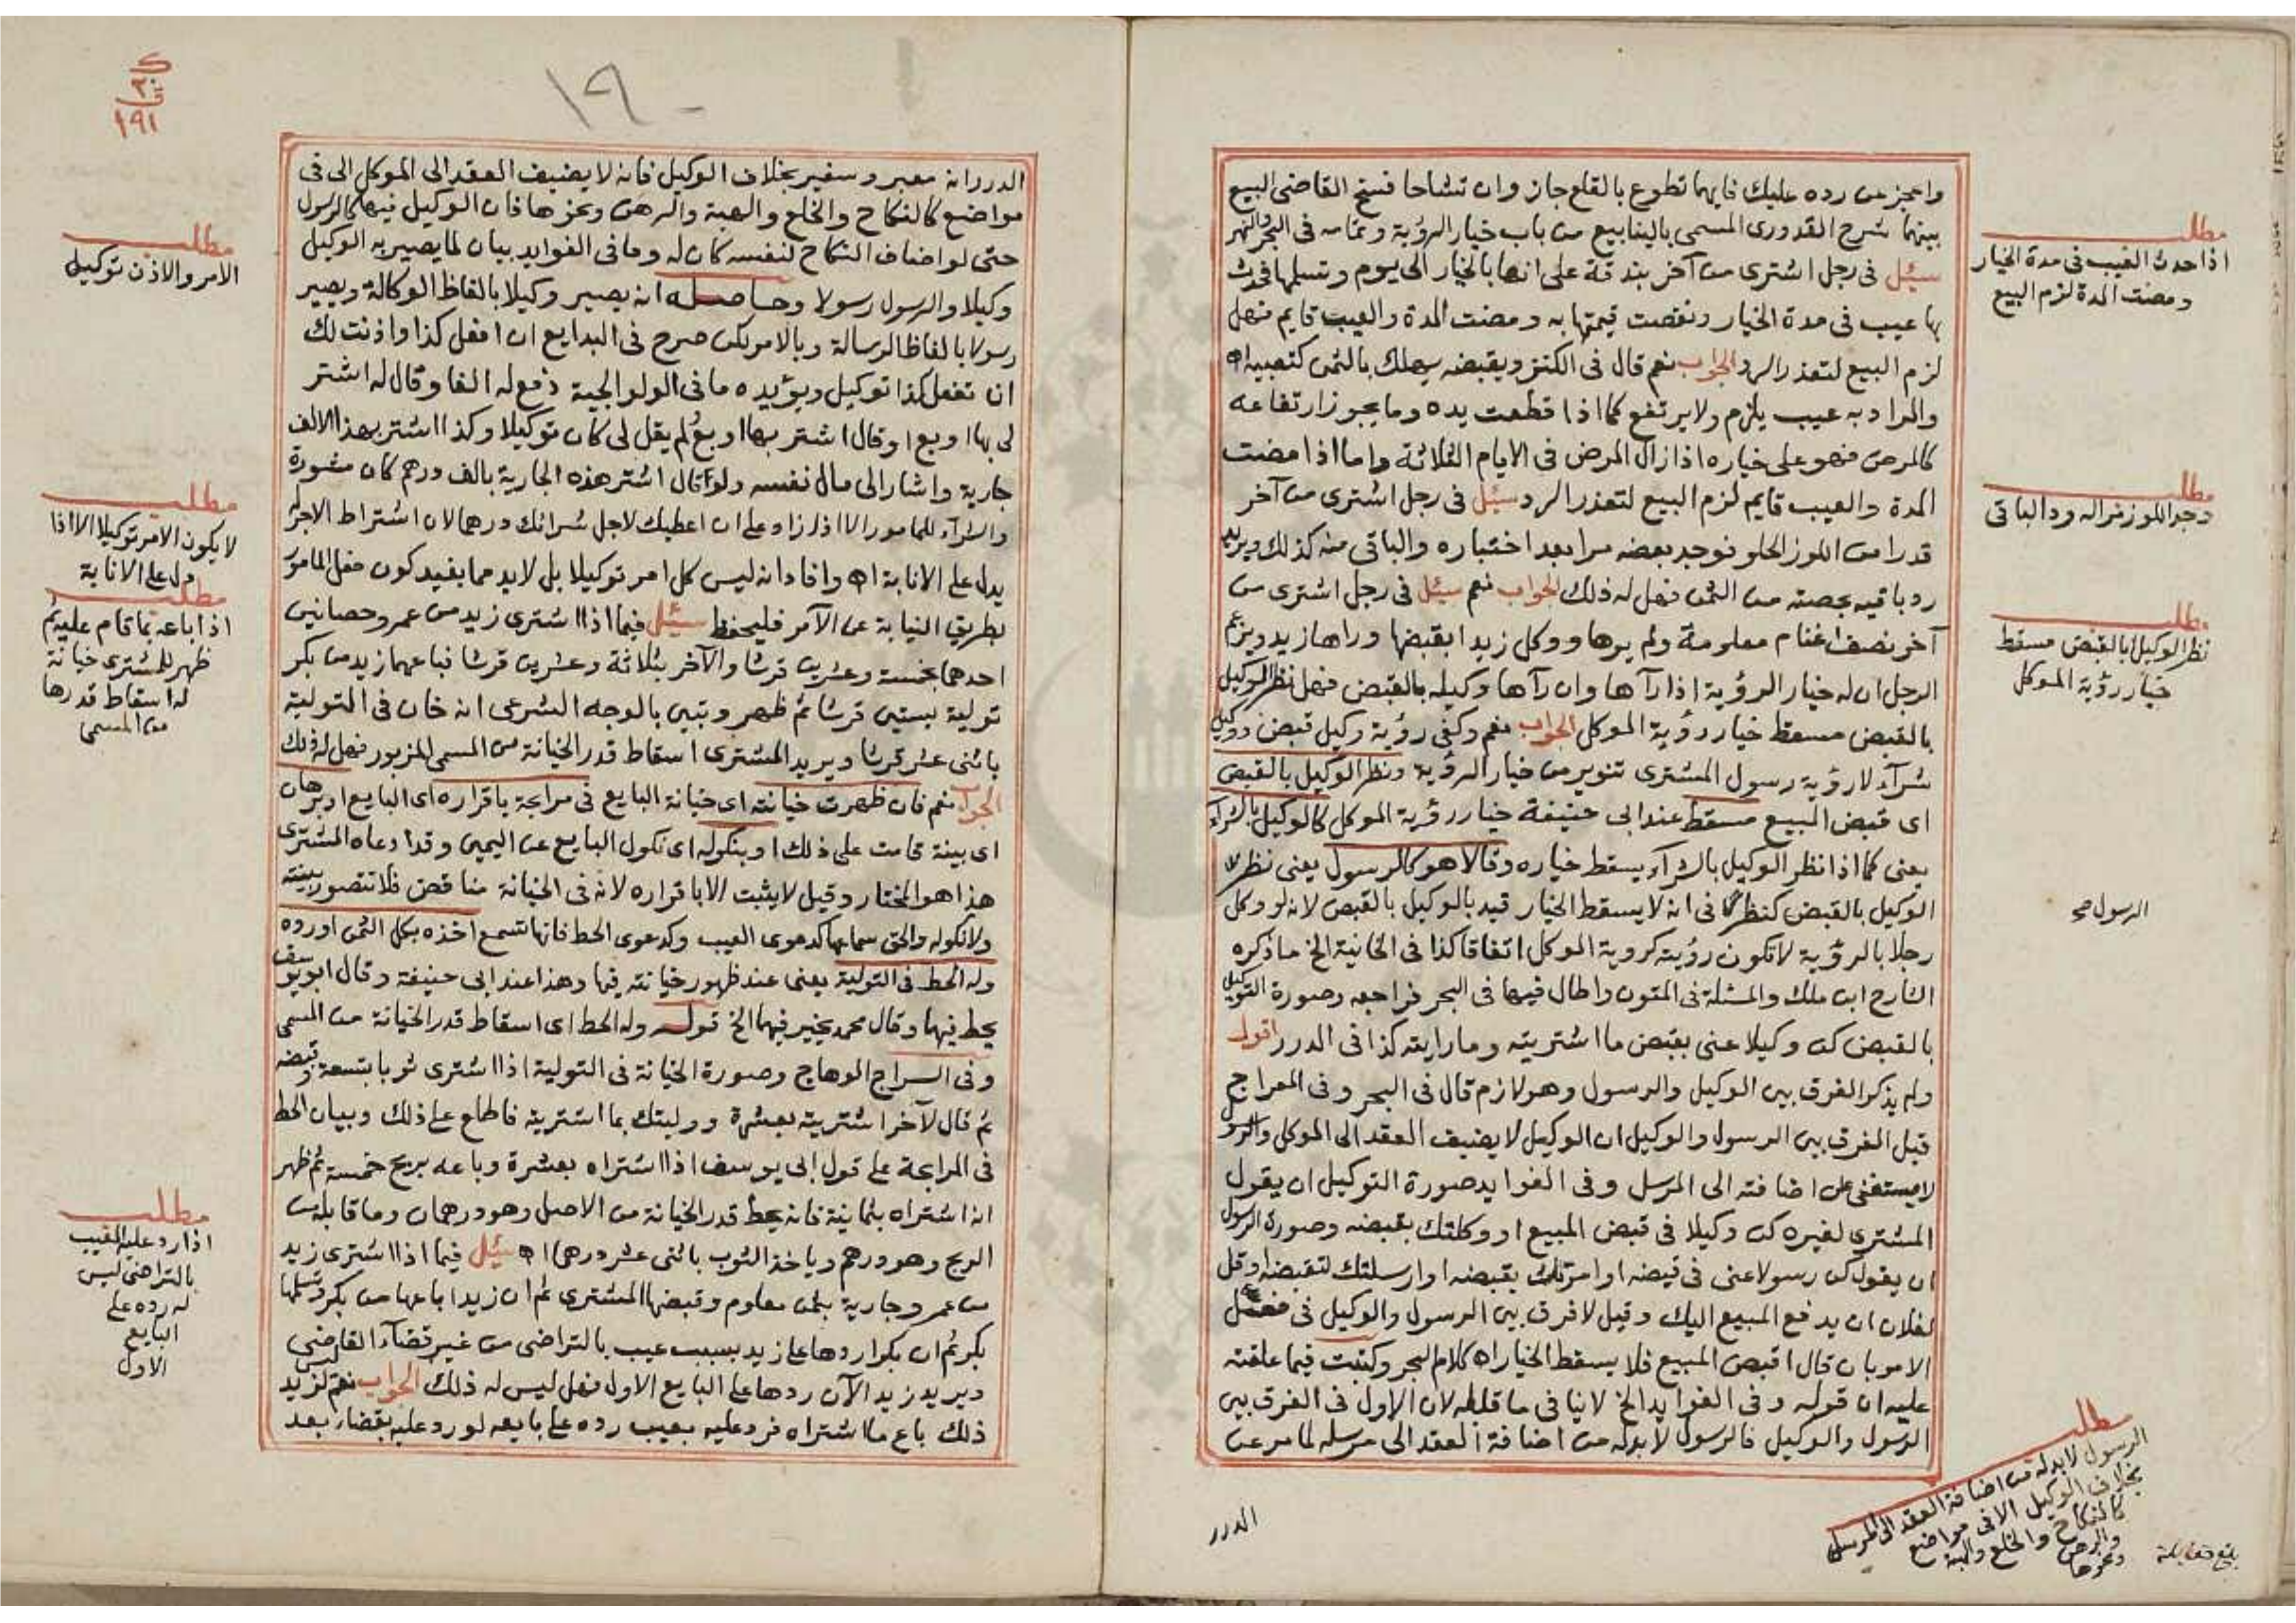 واعجز عن رده عليك فايهما تطوع بالقلع جاز وان تشاحا فسخ القاضي البيع
بينهما شرح القدورى المسمى بالينابيع من باب خيار الرؤية وتمامه فى البحر والنهر
سئل فى رجل اشترى من آخر بندقة على انها بالخيار الى يوم وتسلمها فحدث
بها عيب فى مدة الخيار ونقصت قيمتها به ومضت المدة والعيب قايم فهل
لزم البيع لتعذر الرد الجواب نعم قال فى الكنز ويقبضه يهلك بالثمن كتعيبه اه
والمراد به عيب يلزم ولا يرتفع كما اذا قطعت يده وما يجوز ارتفاعه
كالمرض فهو على خياره اذا زال المرض فى الايام الثلاثة واما اذا مضت
المدة والعيب قايم لزم البيع لتعذر الرد سئل فى رجل اشترى من آخر
قدرا من اللوز الحلو فوجد بعضه مرا بعد اختباره والباقى منه كذلك ويريد
رد باقيه بحصته من الثمن فهل له ذلك الجواب نعم سئل فى رجل اشترى من
آخر نصف اغنام معلومة ولم يرها ووكل زيدا بقبضها وراها زيد ويزعم
الرجل ان له خيار الرؤية اذا رآها وان رآها وكيله بالقبض فهل نظر الوكيل
بالقبض مسقط خيار رؤية الموكل الجواب نعم وكفى رؤية وكيل قبض ووكيل
شرآء لا رؤية رسول المشترى تنوير من خيار الرؤية ونظر الوكيل بالقبض
اى قبض المبيع مسقط عند ابى حنيفة خيار رؤية الموكل كالوكيل بالشرآء
يعنى كما اذا نظر الوكيل بالشرآء يسقط خياره وقالا هو كالرسول يعنى نظر
الوكيل بالقبض كنظر فى انه لا يسقط الخيار قيد بالوكيل بالقبض لانه لو وكل
رجلا بالرؤية لا تكون رؤيته كروية الموكل اتفاقا كذا فى الخانية الخ ما ذكره
الشارح ابن ملك والمسئلة فى المتون واطال فيها فى البحر فراجعه وصورة التوكيل
بالقبض كن وكيلا عنى بقبض ما اشتريته وما رايته كذا فى الدرر اقول
ولم يذكر الفرق بين الوكيل والرسول وهو لازم قال فى البحر وفى المعراج
قيل الفرق بين الرسول والوكيل ان الوكيل لا يضيف العقد الى الموكل والرسول
لا يستغنى عن اضافته الى المرسل وفى الفوايد صورة التوكيل ان يقول
المشترى لغيره كن وكيلا فى قبض المبيع او وكلتك بقبضه وصورة الرسول
ان يقول كن رسولا عنى فى قبضه او امرتك بقبضه او ارسلتك لتقبضه او قل
لفلان ان يدفع المبيع اليك وقيل لا فرق بين الرسول والوكيل فى فصل
الامر بان قال اقبض المبيع فلا يسقط الخيار اه كلام البحر وكتبت فيما علقته
عليه ان قوله وفى الفوايد الخ لا ينافى ما قبله لان الاول فى الفرق بين
الرسول والوكيل فالرسول لا بد له من اضافة العقد الى مرسله لما مر عن
الدرر
مطلب
اذا حدث العيب فى مدة الخيار
ومضت المدة لزم البيع
مطلب
وجد اللوز مرا له رد الباقى
مطلب
نظر الوكيل بالقبض مسقط
خيار رؤية الموكل
الرسول صح
مطلب
الرسول لا بد له من اضافة العقد الى المرسل
بخلاف الوكيل الا فى مواضع
كالنكاح والخلع والهبة
والرهن
ونحوها
بلغ مقابلة
١٩٠
١٩١
الدرر انه معبر وسفير بخلاف الوكيل فانه لا يضيف العقد الى الموكل الى فى
مواضع كالنكاح والخلع والهبة والرهن ونحوها فان الوكيل فيها كالرسول
حتى لو اضاف النكاح لنفسه كان له وما فى الفوايد بيان لما يصير به الوكيل
وكيلا والرسول رسولا وحاصله انه يصير وكيلا بالفاظ الوكالة ويصير
رسولا بالفاظ الرسالة وبالامر لكن صرح فى البدايع ان افعل كذا واذنت لك
ان تفعل كذا توكيل ويؤيده ما فى الولوالجية دفع له الفا وقال له اشتر
لى بها او بع او قال اشتر بها او بع ولم يقل لى كان توكيلا وكذا اشتر بهذا الالف
جارية واشار الى مال نفسه ولو قال اشتر هذه الجارية بالف درهم كان مشورة
والشرآء للمامور الا اذا زاد على ان اعطيك لاجل شرائك درهما لان اشتراط الاجر
يدل على الانابة اه وافاد انه ليس كل امر توكيلا بل لا بد مما يفيد كون فعل المامور
بطريق النيابة عن الآمر فليحفظ سئل فيما اذا اشترى زيد من عمر وحصانين
احدهما بخمسة وعشرين قرشا والآخر بثلاثة وعشرين قرشا فباعهما زيد من بكر
تولية بستين قرشا ثم ظهر وتبين بالوجه الشرعى انه خان فى التولية
باثنى عشر قرشا ويريد المشترى اسقاط قدر الخيانة من المسمى المزبور فهل له ذلك
الجواب نعم فان ظهرت خيانته اى خيانة البايع فى مرابحة باقراره اى البايع او برهان
اى بينة قامت على ذلك او بنكوله اى نكول البايع عن اليمين وقد ادعاه المشترى
هذا هو المختار وقيل لا يثبت الا باقراره لانه فى الخيانة مناقض فلا تتصور بينته
ولا نكوله والحق سماعها كدعوى العيب وكدعوى الحط فانها تسمع اخذه بكل الثمن او رده
وله الحط فى التولية يعنى عند ظهور خيانته فيها وهذا عند ابى حنيفة وقال ابو يوسف
يحط فيهما وقال محمد يخير فيهما الخ قوله وله الحط اى اسقاط قدر الخيانة من المسمى
وفى السراج الوهاج وصورة الخيانة فى التولية اذا اشترى ثوبا بتسعة وقبضه
ثم قال لآخر اشتريته بعشرة ووليتك بما اشتريته فاطلع على ذلك وبيان الحط
فى المرابحة على قول ابى يوسف اذا اشتراه بعشرة وباعه بربح خمسة ثم ظهر
انه اشتراه بثمانية فانه يحط قدر الخيانة من الاصل وهو درهمان وما قابله من
الربح وهو درهم وياخذ الثوب باثنى عشر درهما اه سئل فيما اذا اشترى زيد
من عمر وجارية بثمن معلوم وقبضها المشترى ثم ان زيدا باعها من بكر وتسلمها
بكر ثم ان بكرا ردها على زيد بسبب عيب بالتراضى من غير قضآء القاضى
ويريد زيد الآن ردها على البايع الاول فهل ليس له ذلك الجواب نعم ليس لزيد
ذلك باع ما اشتراه فرد عليه بعيب رده على بايعه لو رد عليه بقضاء بعد
مطلب
الامر والاذن توكيل
مطلب
لا يكون الامر توكيلا الا اذا
دل على الانابة
مطلب
اذا باعه بما قام عليه ثم
ظهر للمشترى خيانة
له اسقاط قدرها
من المسمى
مطلب
اذا رد عليه المعيب
بالتراضى ليس
له رده على
البايع
الاول